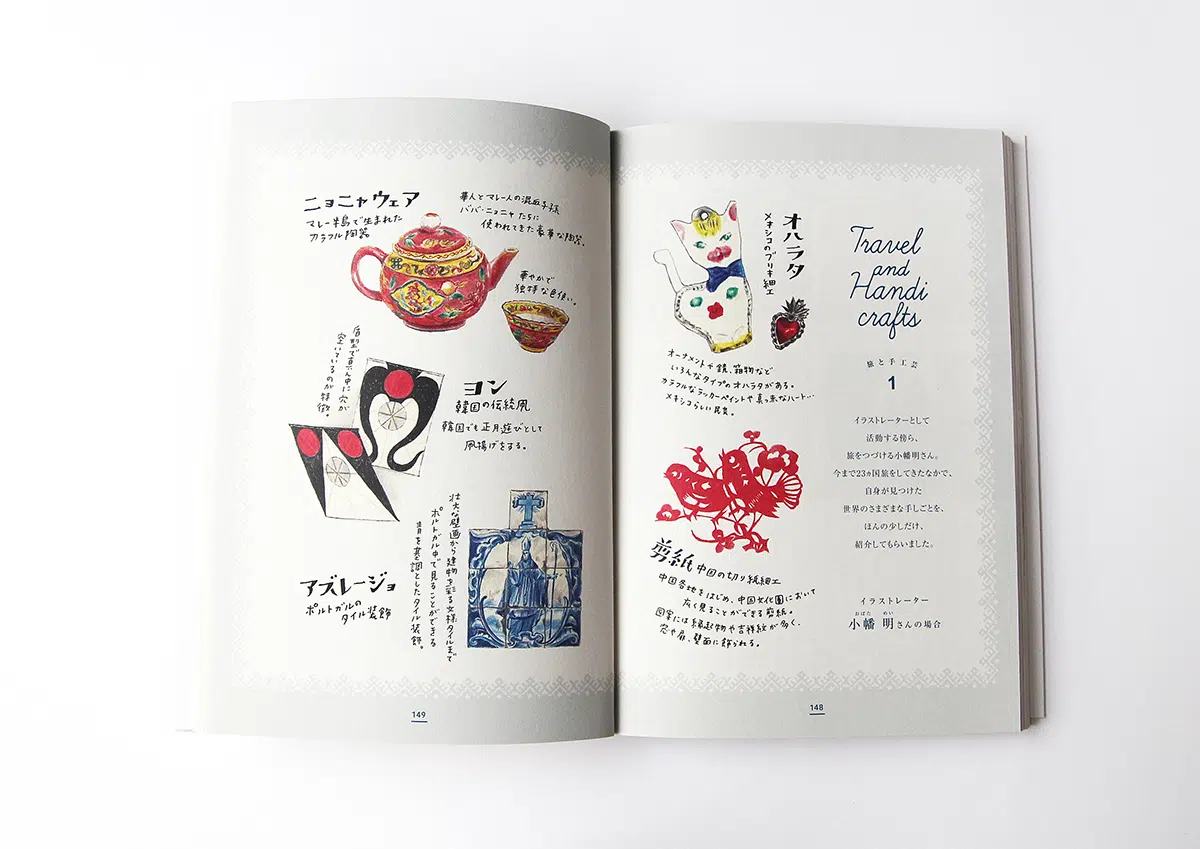 Travel
and
Handi
crafts
旅と手工芸
1
イラストレーターとして
活動する傍ら、
旅をつづける小幡明さん。
今まで23ヵ国旅をしてきたなかで、
自身が見つけた
世界のさまざまな手しごとを、
ほんの少しだけ、
紹介してもらいました。
イラストレーター
おばた めい
小幡 明さんの場合
オハラタ
メキシコのブリキ細工
オーナメントや鏡、箱物など
いろんなタイプのオハラタがある。
カラフルなラッカーペイントや真っ赤なハート…
メキシコらしい民芸。
剪紙 中国の切り紙細工
中国各地をはじめ、中国文化圏において
広く見ることができる剪紙。
図案には縁起物や吉祥紋が多く、
窓や扉、壁面に飾られる。
148
ニョニャウェア
マレー半島で生まれた
カラフル陶器
華人とマレー人の混血子孫
ババ・ニョニャたちに
使われてきた豪華な陶器。
華やかで
独特な色使い。
ヨン
韓国の伝統凧
韓国でも正月遊びとして
凧揚げをする。
盾型で真ん中に穴が
空いているのが特徴。
アズレージョ
ポルトガルの
タイル装飾
壮大な壁画から建物を彩る文様タイルまで
ポルトガル中で見ることができる
青を基調としたタイル装飾。
149